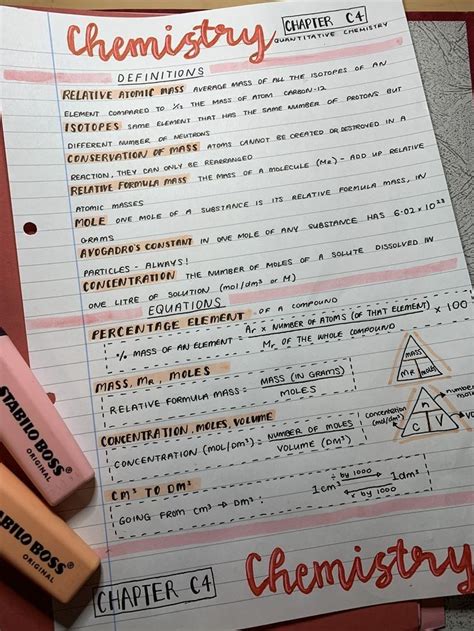 Chemistry
CHAPTER C4
QUANTITATIVE CHEMISTRY
DEFINITIONS
RELATIVE ATOMIC MASS AVERAGE MASS OF ALL THE ISOTOPES OF AN
ELEMENT COMPARED TO 1/12 THE MASS OF ATOM CARBON-12
ISOTOPES SAME ELEMENT THAT HAS THE SAME NUMBER OF PROTONS BUT
DIFFERENT NUMBER OF NEUTRONS
CONSERVATION OF MASS ATOMS CANNOT BE CREATED OR DESTROYED IN A
REACTION, THEY CAN ONLY BE REARRANGED
RELATIVE FORMULA MASS THE MASS OF A MOLECULE (Mr) - ADD UP RELATIVE
ATOMIC MASSES
MOLE ONE MOLE OF A SUBSTANCE IS ITS RELATIVE FORMULA MASS, IN
GRAMS
AVOGADRO'S CONSTANT IN ONE MOLE OF ANY SUBSTANCE HAS 6.02 x 10²³
PARTICLES - ALWAYS!
CONCENTRATION THE NUMBER OF MOLES OF A SOLUTE DISSOLVED IN
ONE LITRE OF SOLUTION (mol/dm³ or M)
EQUATIONS
PERCENTAGE ELEMENT OF A COMPOUND
% MASS OF AN ELEMENT = Ar x NUMBER OF ATOMS (OF THAT ELEMENT) x 100
Mr OF THE WHOLE COMPOUND
MASS, MR, MOLES
RELATIVE FORMULA MASS = MASS (IN GRAMS)
MOLES
MASS
Mr moles
CONCENTRATION, MOLES, VOLUME
CONCENTRATION (MOL/DM³) = NUMBER OF MOLES
VOLUME (DM³)
concentration
(mol/dm³)
n
C V
volume
(dm³)
CM³ TO DM³
GOING FROM CM³ → DM³ :
÷ by 1000
1cm³ 1dm³
x by 1000
CHAPTER C4
Chemistry
STABILO BOSS
ORIGINAL
STABILO BOSS
ORIGINAL